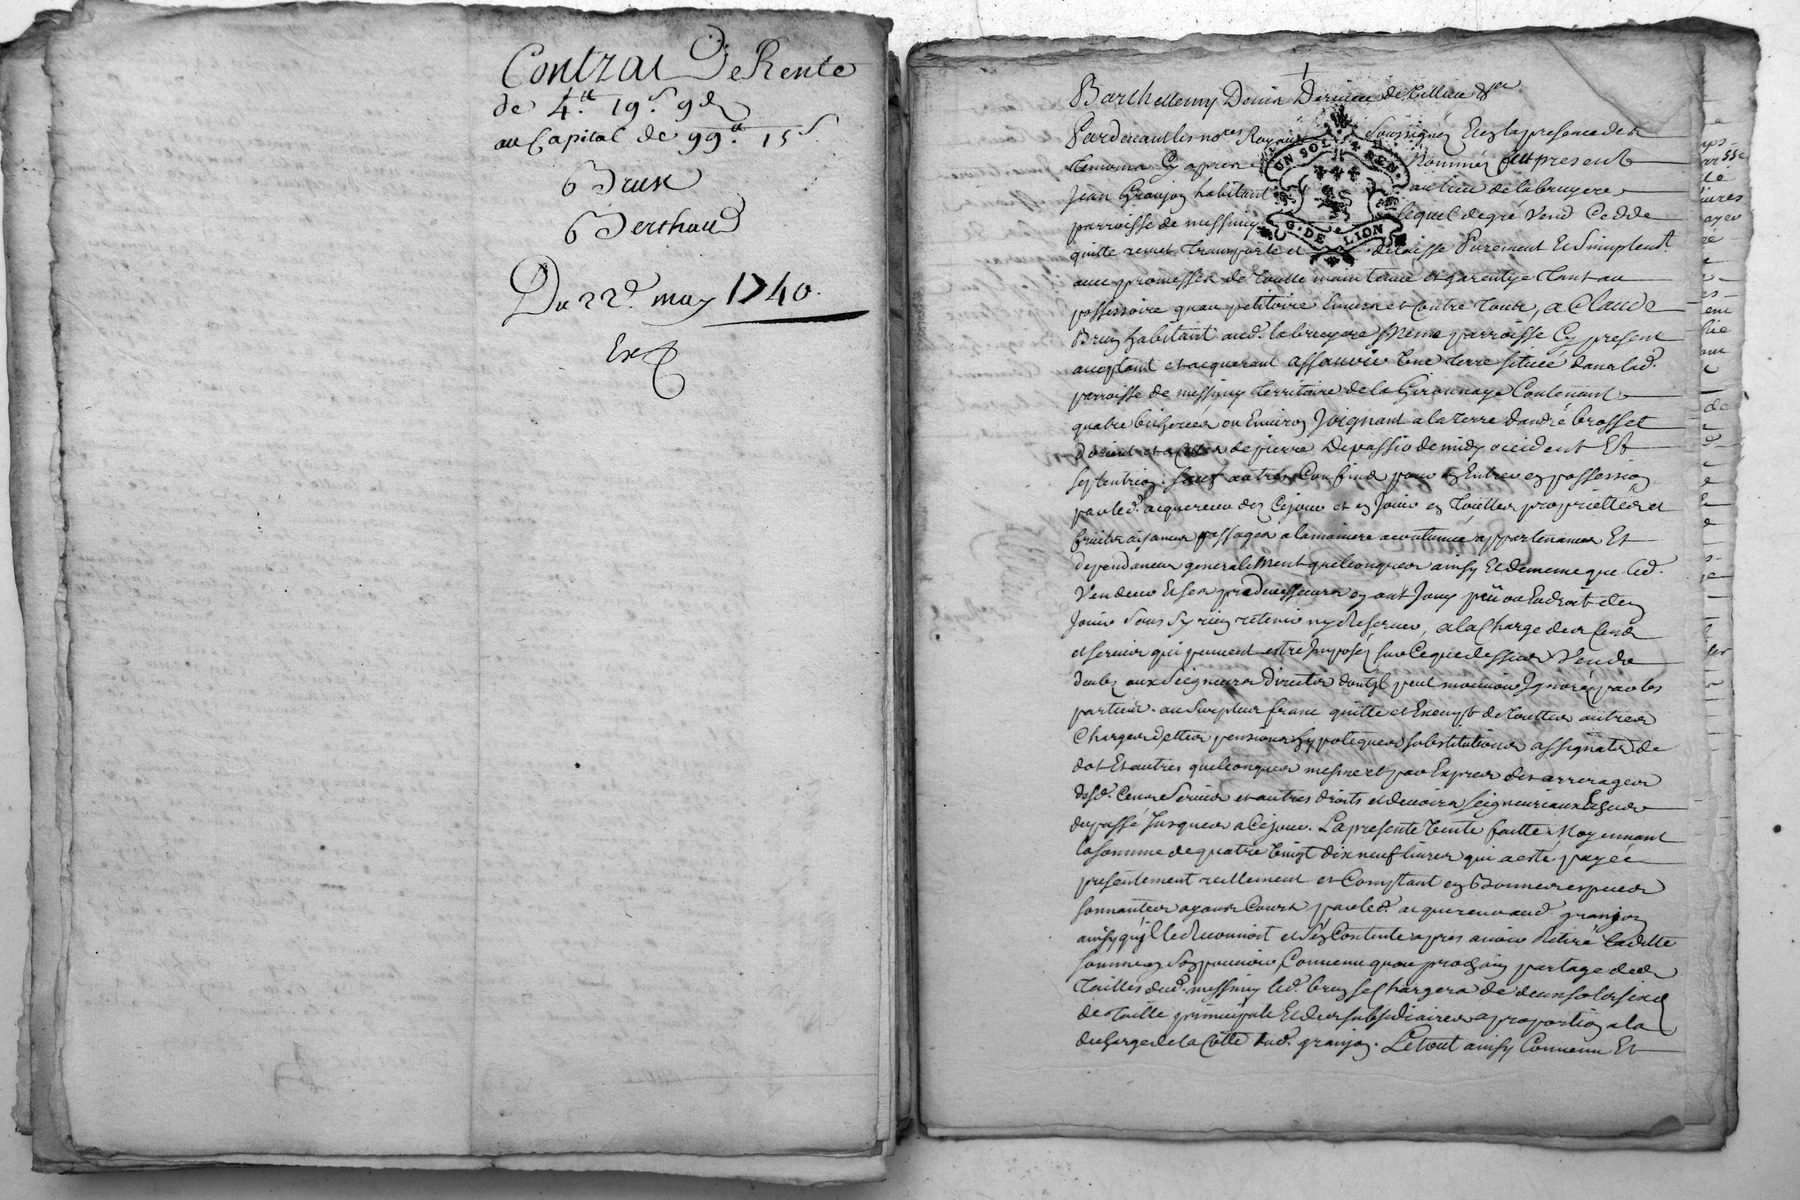 Contrat De Rente
de 4.tt 19.s 9d
au Capital de 99.tt 15s
Brun
Berthaud
Du 22d. may 1740.
Ex
Barthellemy Donin
Pardevant les nores Royaux Soussignéz Et en la presence des
temoins Cy apres Nommés fut present
UN SOL 4 DEN.
G. DE LION
Jean Granjon habitant au lieu de la bruyere
parroisse de messimy lequel de gré Vend Cedde
quitte remet transporte et delaisse Purement Et Simplement
avec promesses de toutte maintenue et garentye tant au
possessoire qu'au petitoire Envers et Contre tous, a Claude
Brun habitant aud. la bruyere Meme parroisse Cy present
aceptant et acquerant assavoir Une terre située dans lad.
parroisse de messimy territoire de la Gironnaye Contenant
quatre bicherées ou Environ Joignant a la terre d'andré brosset
d'orient et a celles de pierre Depassio de midy occident Et
septentrion. Sauf autres Confins pour en Entrer en possession
par led. acquereur dez Cejour et en Jouir en touttes proprietter et
fruits aisances passages a la maniere acoutumée appartenances Et
dependances generalement quelconques ainsy Et de meme que led.
Vendeur Et ses predecesseurs en ont Jouy pû ou Eu droit d'en
Jouir Sans Sy rien retenir ny Reserver, a la Charge des Cens
et servis qui peuvent estre Imposéz sur Ceque dessus Vendu
deubs aux Seigneurs Directes
parties. au Surplus franc quitte et Exempt de Touttes autres
Charges dettes pensions hypoteques substitutions assignats de
dot Et autres quelconques mesme et par Exprés des arrerages
desd. Cens Servis et autres droits et devoirs Seigneuriaux
du passé Jusques a Cejour. La presente Vente faitte Moyennant
la somme de quatre Vingt dix neuf livres qui a esté payée
presentement reellement et Comptant en Bonnes especes
sonnantes ayans Cours par led. acquereur aud. granjon
ainsy qu'il le Reconnoit et s'en Contente apres avoir Retiré Laditte
somme en Son pouvoir, Convenu qu'au prochain partage des
tailles dud. messimy led. brun se Chargera de deux sols six d
de taille principale Et des subsidiaires a proportion a la
decharge de la Cotte dud. granjon. Le tout ainsy Convenu Et